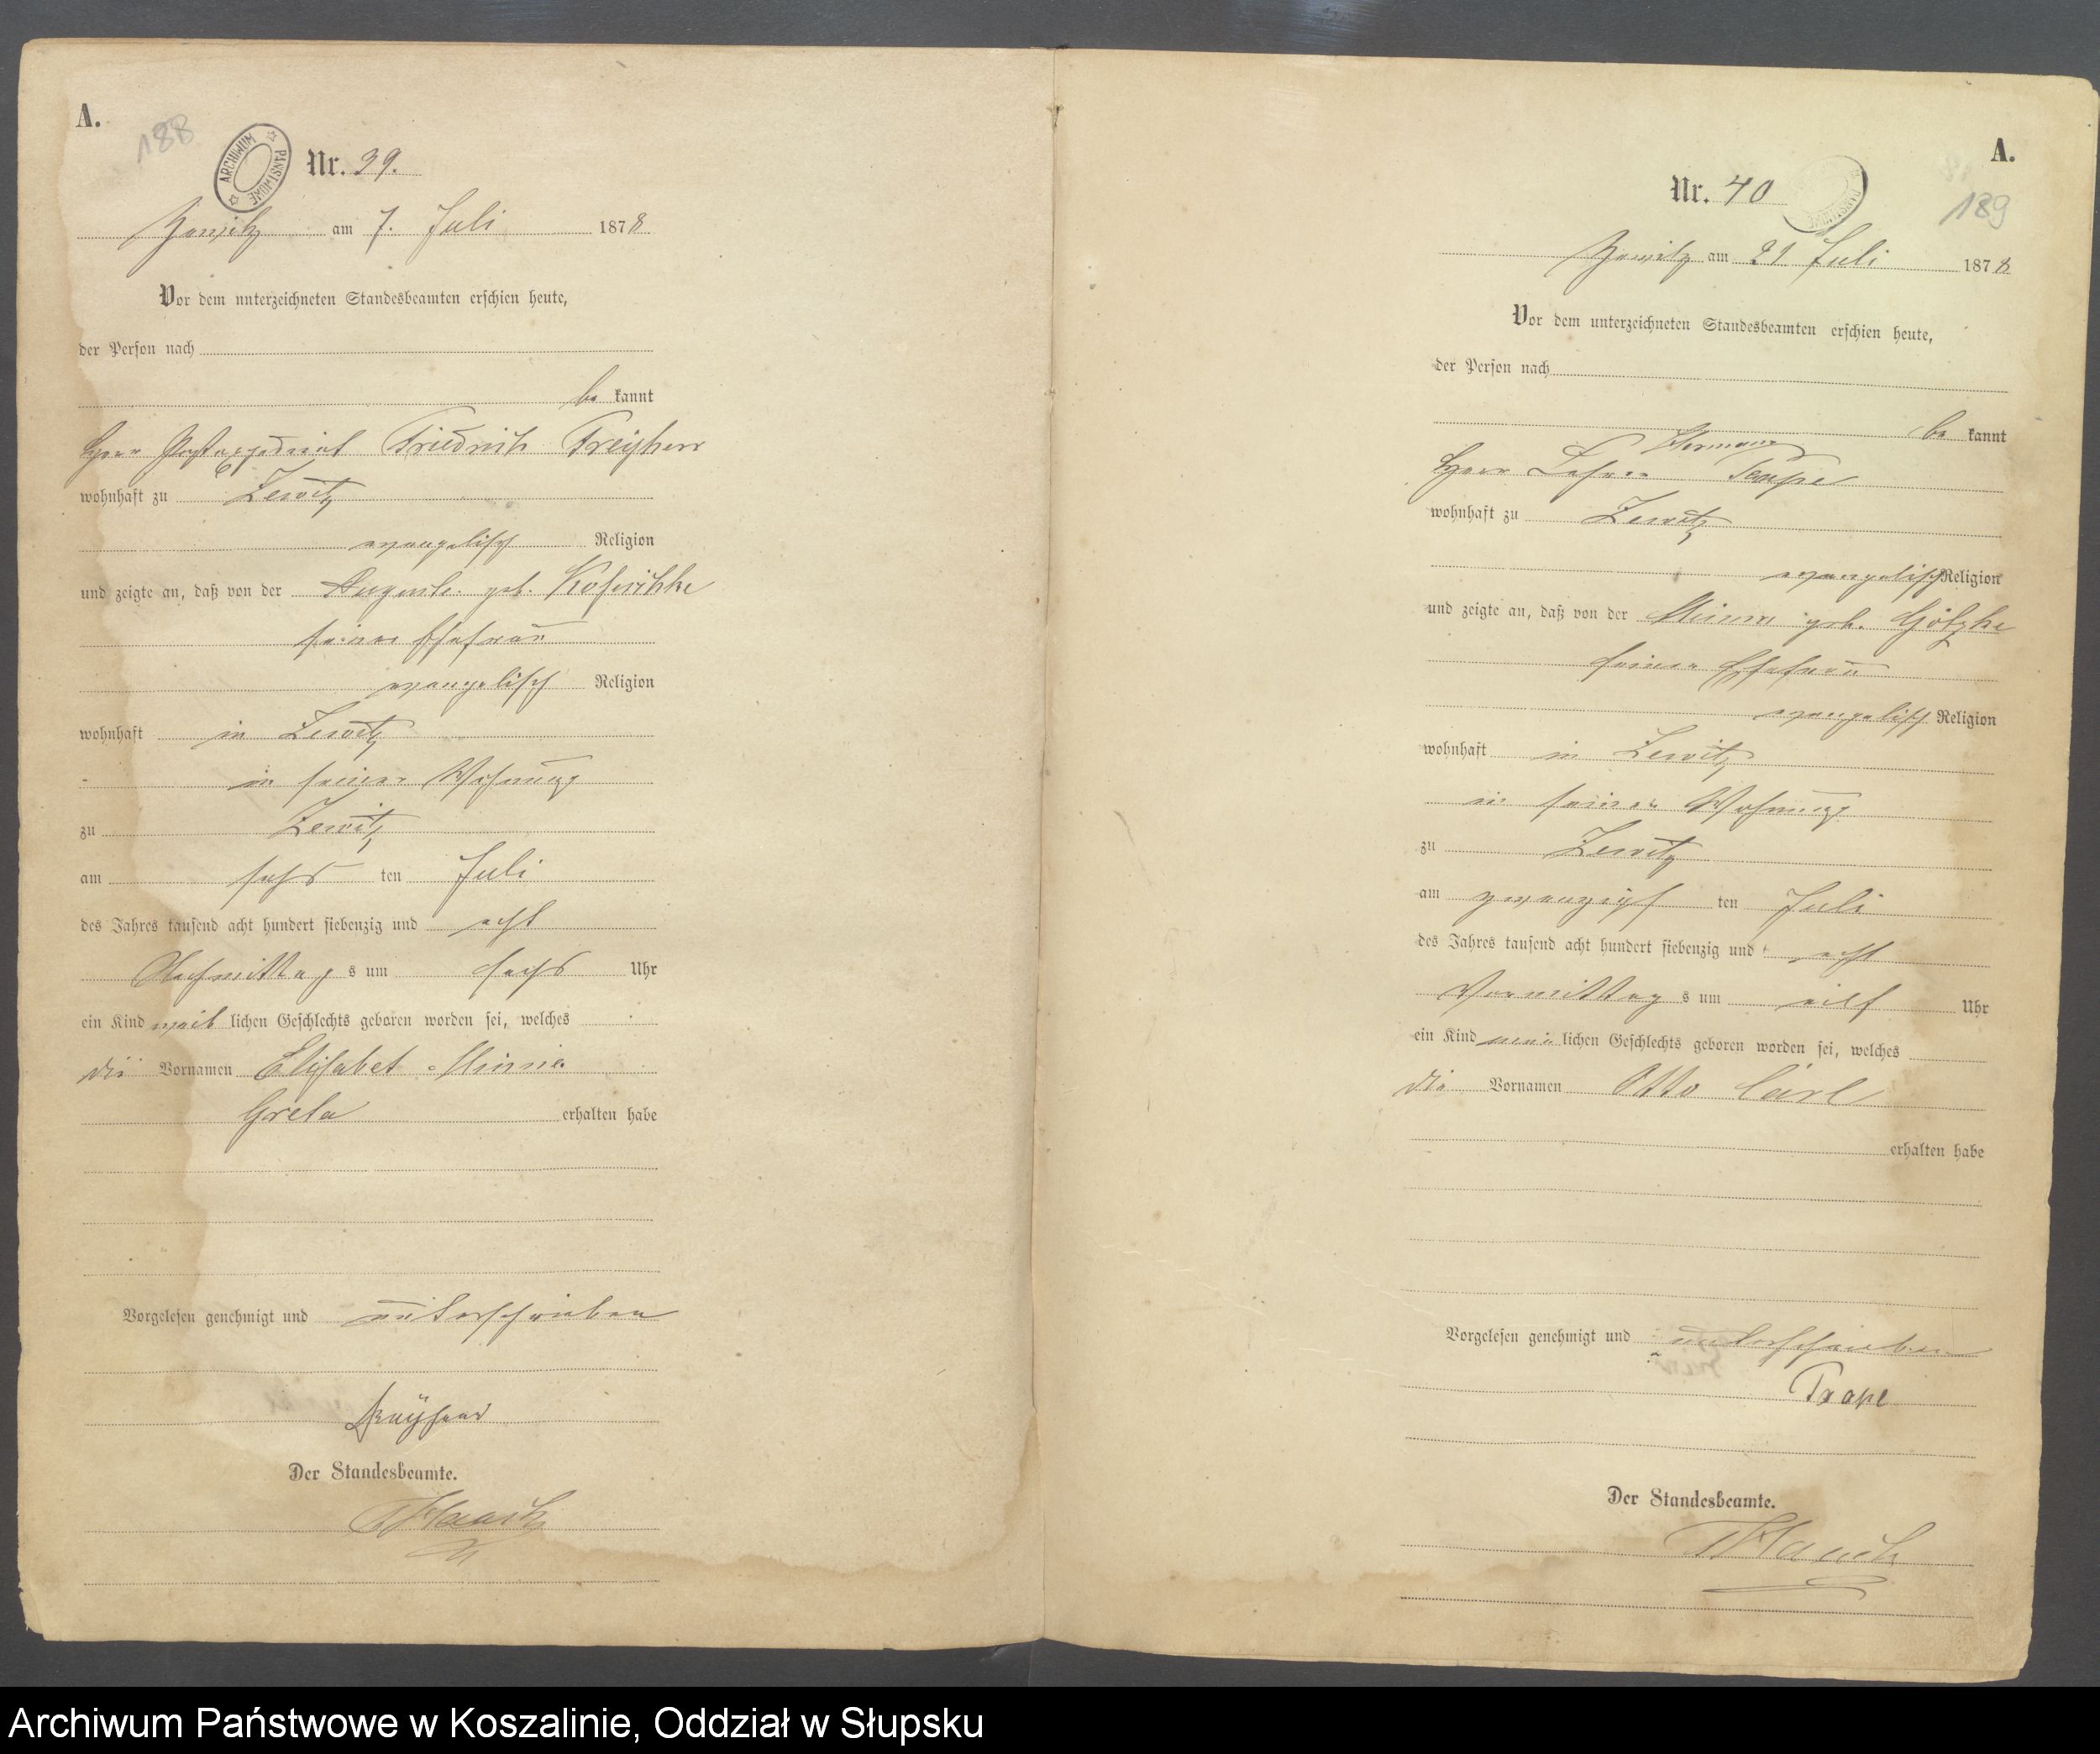 A.
188
ARCHIWUM PAŃSTWOWE
Nr. 39.
Zewitz am 7. Juli 1878
Vor dem unterzeichneten Standesbeamten erschien heute,
der Person nach
be kannt
Herr Postexpedient Friedrich Freyherr
wohnhaft zu Zewitz
evangelisch Religion
und zeigte an, daß von der Auguste geb.
seiner Ehefrau
evangelisch Religion
wohnhaft in Zewitz
in seiner Wohnung
zu Zewitz
am sechs ten Juli
des Jahres tausend acht hundert siebenzig und acht
Nachmittag s um sechs Uhr
ein Kind weib lichen Geschlechts geboren worden sei, welches
die Vornamen Elisabet Minna
Greta erhalten habe
Vorgelesen genehmigt und unterschrieben
Der Standesbeamte.
A.
189
Nr. 40
Zewitz am 21 Juli 1878
Vor dem unterzeichneten Standesbeamten erschien heute,
der Person nach
be kannt
Hermann
Herr Lehrer
wohnhaft zu Zewitz
evangelisch Religion
und zeigte an, daß von der geb. Götzke
seiner Ehefrau
evangelisch Religion
wohnhaft in Zewitz
in seiner Wohnung
zu Zewitz
am zwanzigs ten Juli
des Jahres tausend acht hundert siebenzig und acht
Vormittag s um eilf Uhr
ein Kind männ lichen Geschlechts geboren worden sei, welches
die Vornamen Otto Carl
erhalten habe
Vorgelesen genehmigt und unterschrieben
Der Standesbeamte.
Archiwum Państwowe w Koszalinie, Oddział w Słupsku